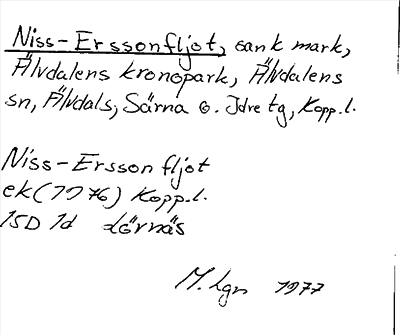 Niss-Erssonfljot, sank mark,
Älvdalens kronopark, Älvdalens
sn, Älvdals, Särna o. Idre tg, Kopp.l.
Niss-Erssonfljot
ek(1976) Kopp.l.
15D 1d Lörnäs
M. Lgn 1977